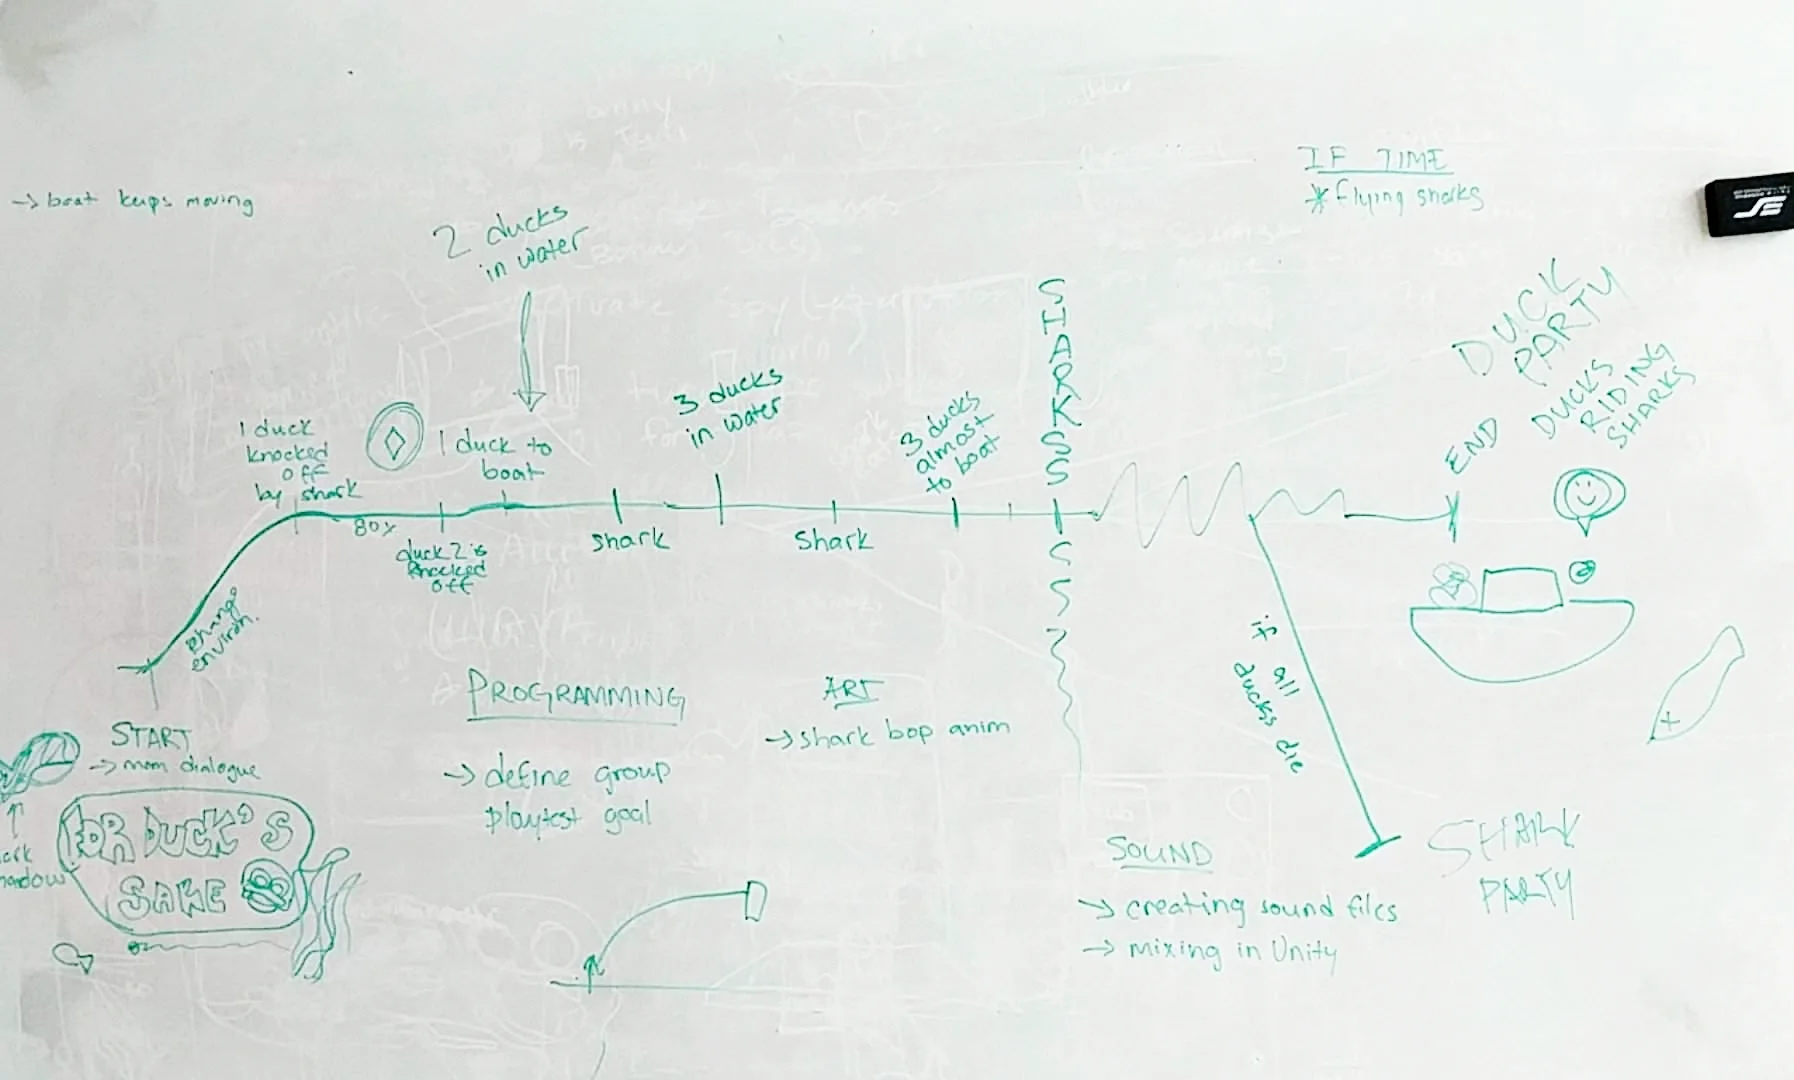 IF TIME
* flying sharks
→ boat keeps moving
2 ducks
in water
1 duck
knocked
off
by shark
80%
duck 2 is
knocked
off
1 duck to
boat
shark
3 ducks
in water
shark
3 ducks
almost
to boat
SHARKSSSS
DUCK
PARTY
END
DUCKS
RIDING
SHARKS
change
environ.
if all
ducks die
SHARK
PARTY
START
→ mom dialogue
FOR DUCK'S
SAKE
PROGRAMMING
→ define group
playtest goal
ART
→ shark bop anim
SOUND
→ creating sound files
→ mixing in Unity